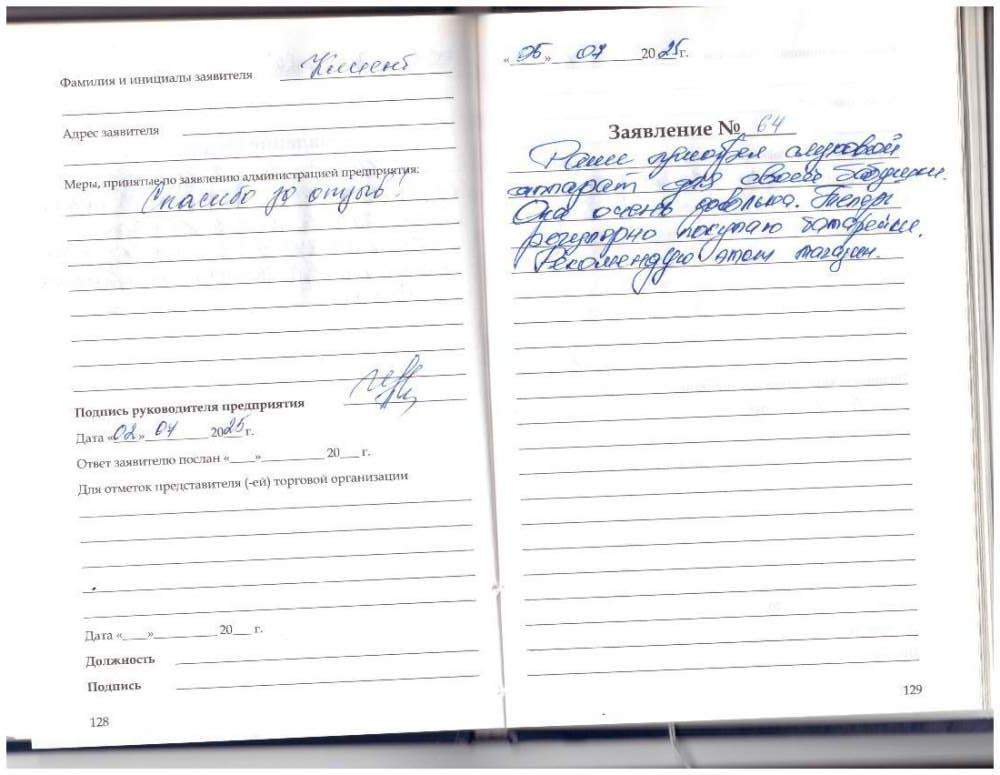 Фамилия и инициалы заявителя Клиент
Адрес заявителя
Меры, принятые по заявлению администрацией предприятия:
Спасибо за отзыв!
Подпись руководителя предприятия
Дата «02» 07 2025 г.
Ответ заявителю послан «___»__________ 20___ г.
Для отметок представителя (-ей) торговой организации
Дата «____»__________ 20___ г.
Должность
Подпись
128
«05» 07 2025г.
Заявление № 64
Ранее приобрел слуховой
аппарат для своей бабушки.
Она очень довольна. Теперь
регулярно покупаю батарейки.
Рекомендую этот магазин.
129